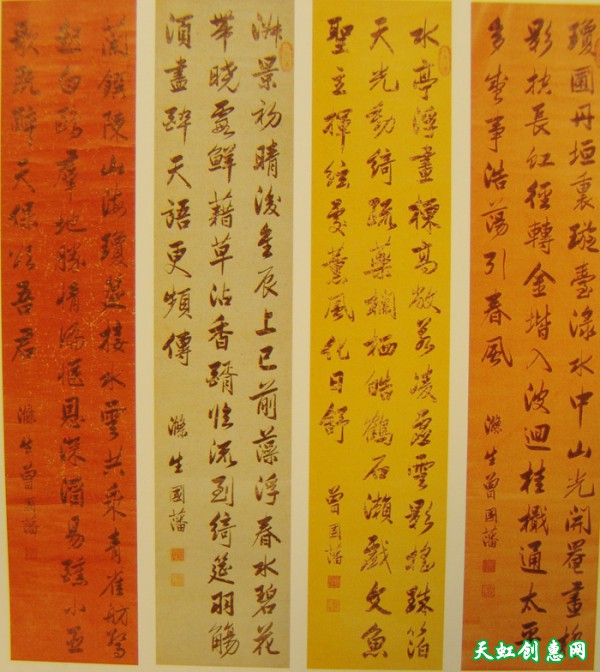 瓊圃丹垣裏璇臺淥水中山光開罨畫橋
影挟長虹徑轉金堦入波迴桂檝通太平
多事浩蕩引春風
滌生曾國藩
水亭浮畫棟高敞若凌虛雲影搖珠箔
天光動綺疏藥欄栖皓鶴石瀨戲文魚
聖主揮絃處薰風化日舒
曾國藩
淑景初晴後芳辰上巳前藻浮春水碧花
帶曉露鮮藉草沾香醑隨流到綺筵羽觴
須盡醉天語更頻傳
滌生國藩
蘭饌陳山海瓊筵接水雲共乘青雀舫驚
起白鷗羣地勝情俱愜恩深酒易醺小臣
歌既醉天保頌吾君
滌生曾國藩
天虹创惠网